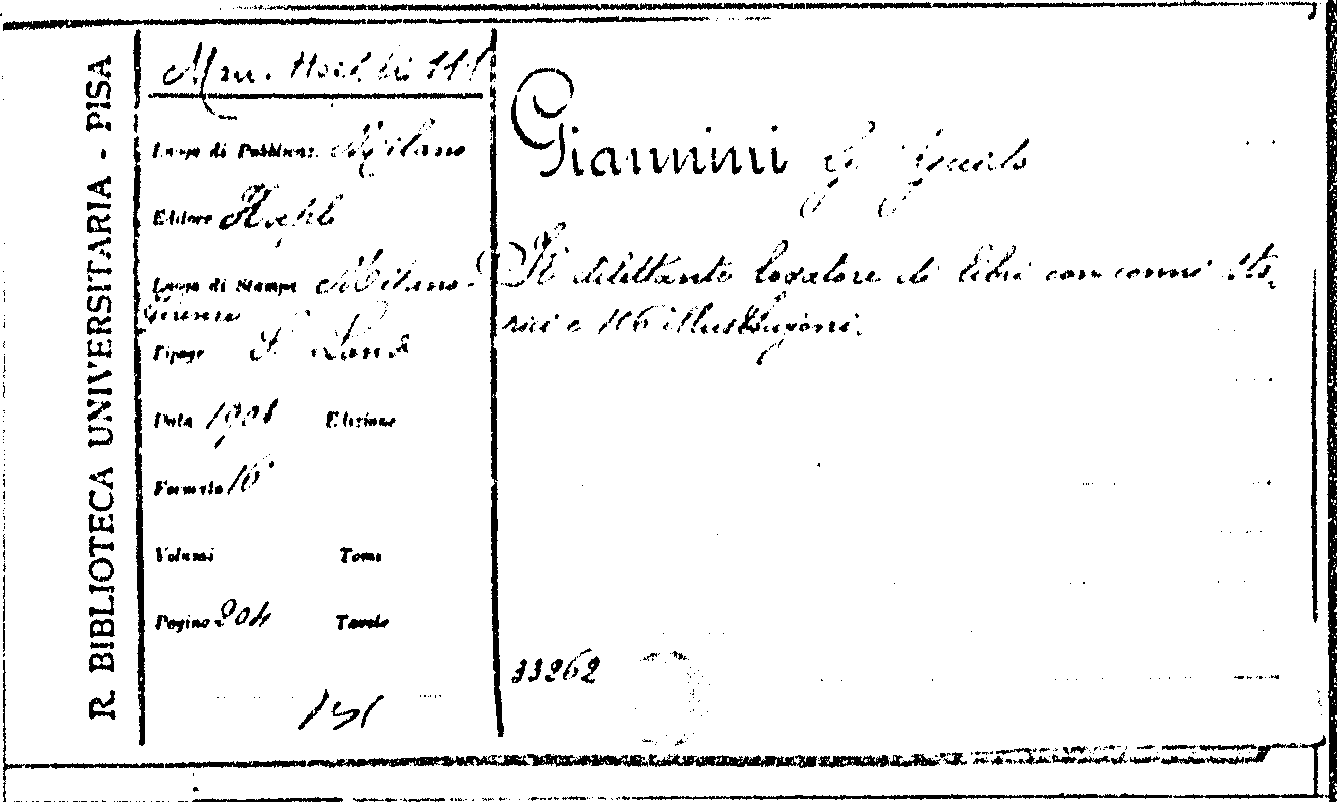 R. BIBLIOTECA UNIVERSITARIA - PISA
Man. Hoepli
Luogo di Pubblicaz. Milano
Editore Hoepli
Luogo di Stampa Milano-
Firenze
Tipogr S. Landi
Data 1908 Edizione
Formato 16°
Volumi Tomi
Pagine 204 Tavole
Giannini G. Guido
Il dilettante legatore di libri con cenni sto-
rici e 116 illustrazioni.
33262